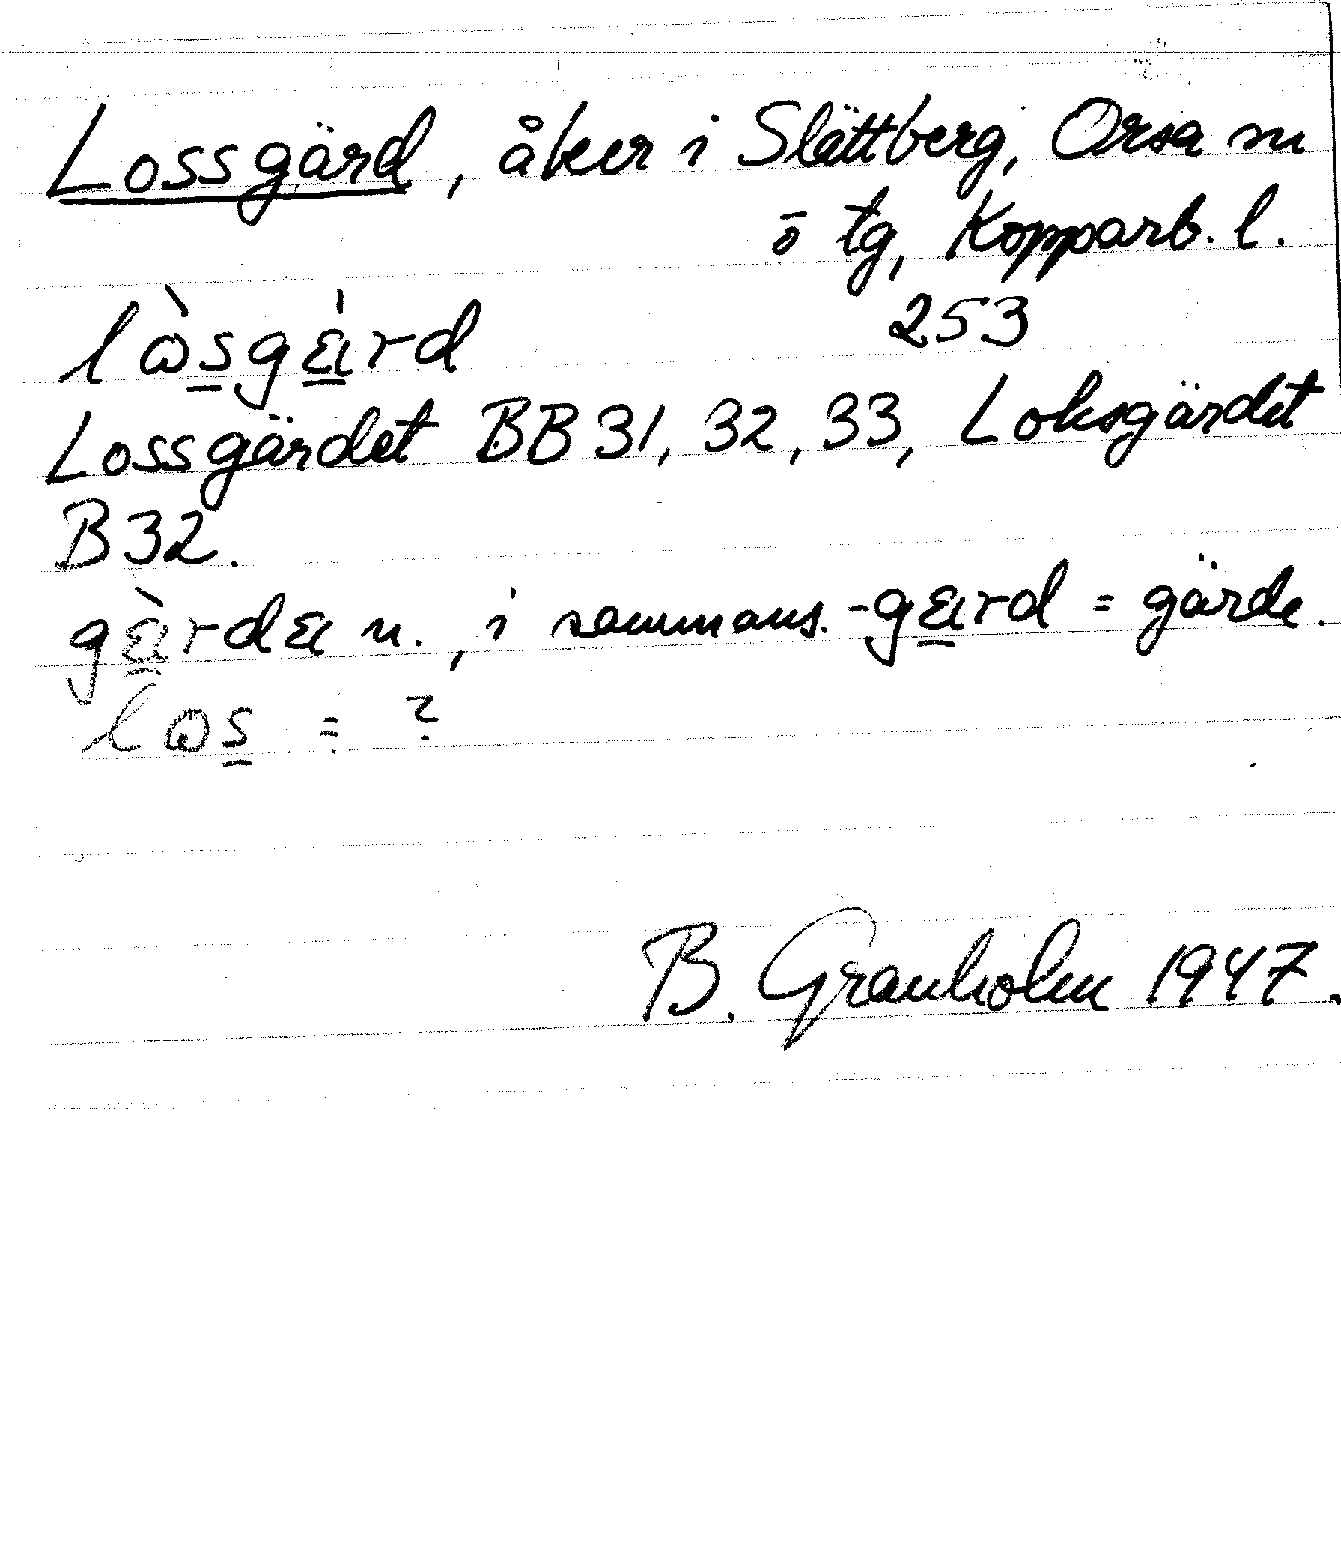 Lossgärd, åker i Slättberg, Orsa sn
ō tg, Kopparb. l.
lò̩sgɛ́rd 253
Lossgärdet BB31, 32, 33, Loksgärdet
B32.
gɛ̀rdɛ n., i sammans. -gɛrd = gärde.
lɷs = ?
B. Granholm 1947.